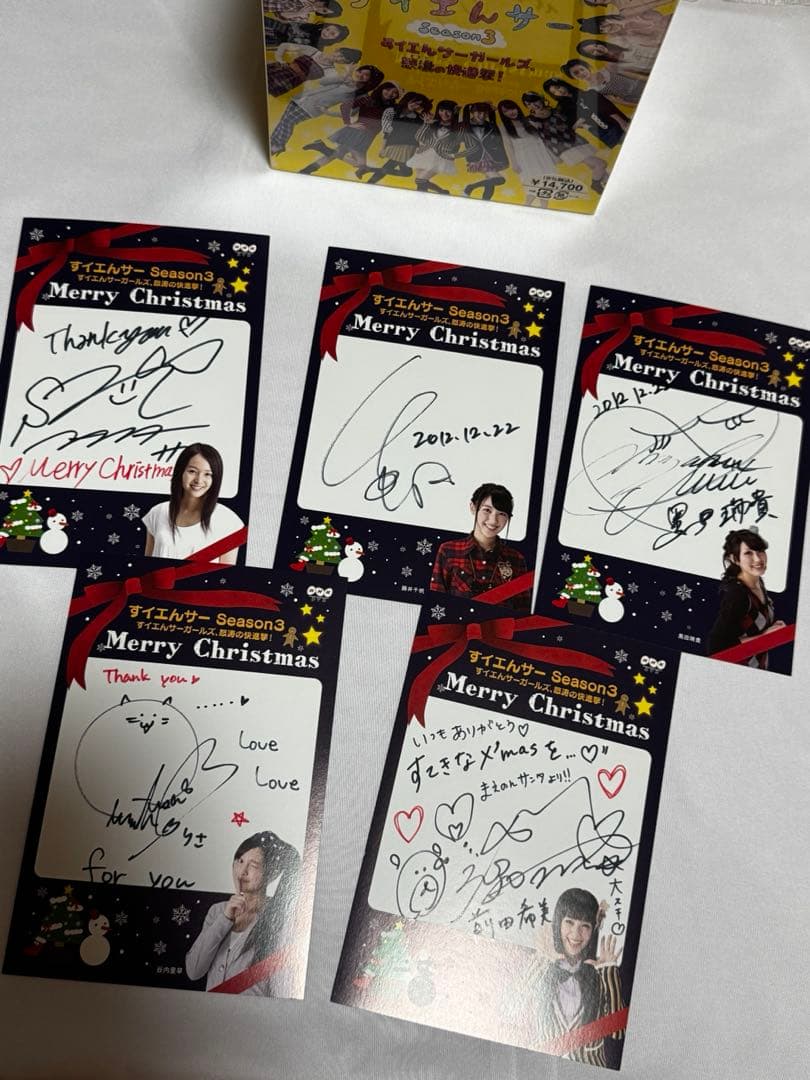 すイエんサー
Season3
すイエんサーガールズ、
怒涛の快進撃!
¥14,700
NHK
すイエんサー Season3
すイエんサーガールズ、怒涛の快進撃!
Merry Christmas
Thank you
Merry Christmas
NHK
すイエんサー Season3
すイエんサーガールズ、怒涛の快進撃!
Merry Christmas
2012.12.22
藤井千帆
NHK
すイエんサー Season3
すイエんサーガールズ、怒涛の快進撃!
Merry Christmas
2012.12.22
黒田瑞貴
黒田瑞貴
NHK
すイエんサー Season3
すイエんサーガールズ、怒涛の快進撃!
Merry Christmas
Thank you
Love
Love
りさ
for you
谷内里早
NHK
すイエんサー Season3
すイエんサーガールズ、怒涛の快進撃!
Merry Christmas
いつもありがとう♡
すてきなX'masを...♡"
まえのんサンタより!!
前田希美
大スキ♡